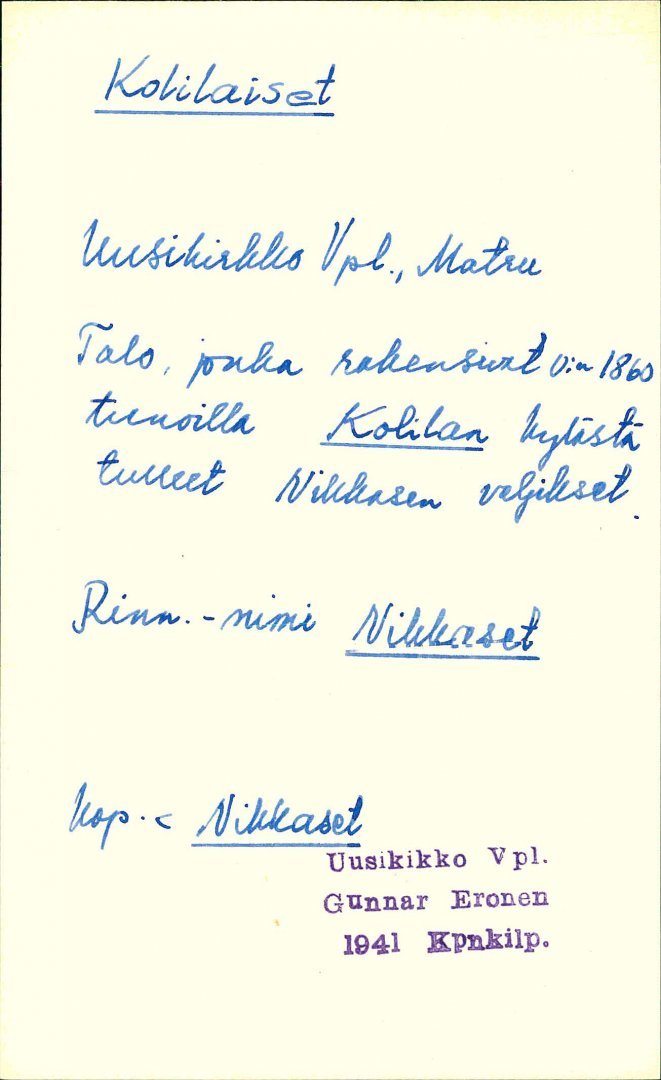 Kolilaiset
Uusikirkko Vpl., Matru
Talo, jonka rakensivat v:n 1860
tienoilla Kolilan kylästä
tulleet Nikkasen veljekset.
Rinn.-nimi Nikkaset
kop. < Nikkaset
Uusikikko Vpl.
Gunnar Eronen
1941 Kpnkilp.